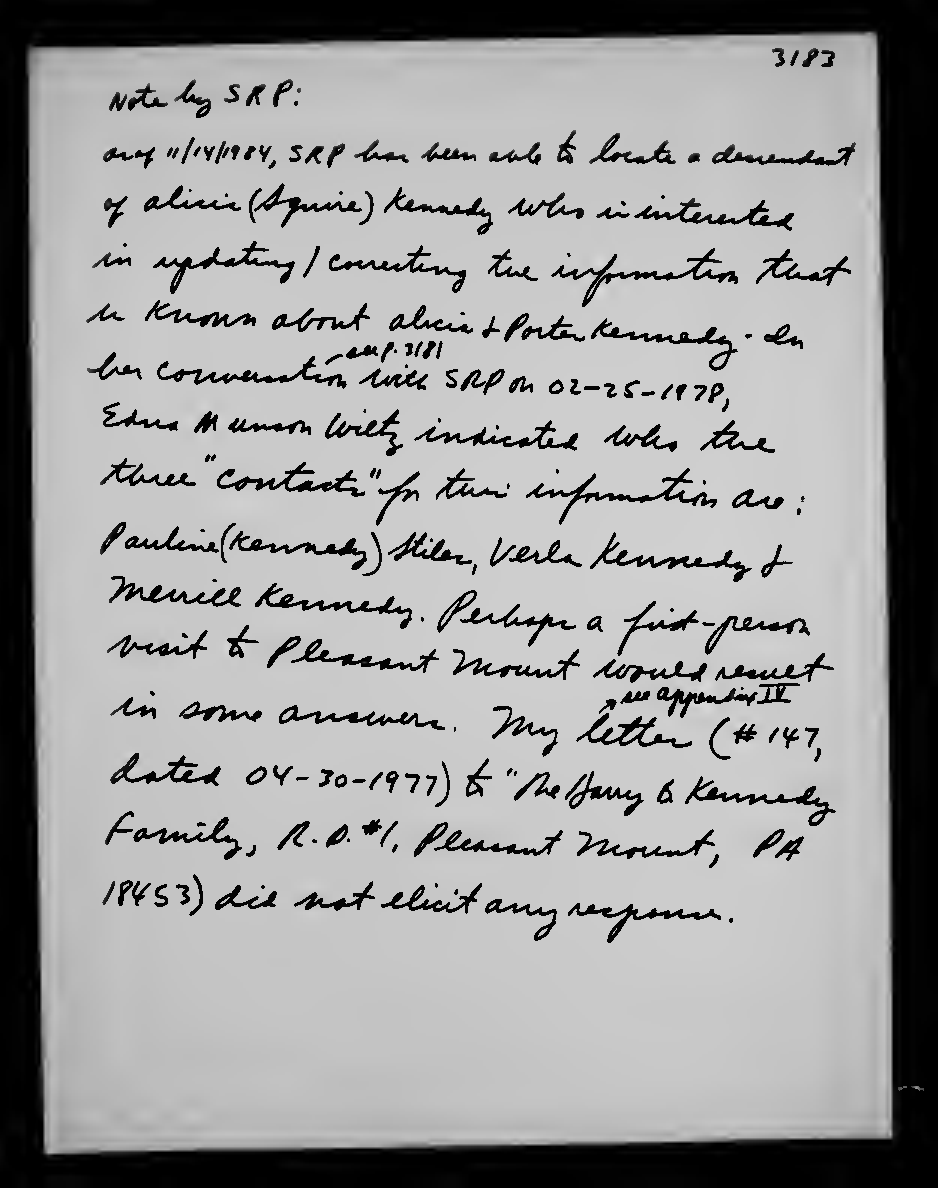 3183
Note by SRP:
as of 11/14/1984, SRP has been able to locate a descendant
of Alicia (Squire) Kennedy who is interested
in updating / correcting the information that
is known about Alicia & Porter Kennedy. In
see p. 3181
her conversation with SRP on 02-25-1978,
Edna Munson Wiltz indicated who the
three "contacts" for this information are:
Pauline (Kennedy) Stiles, Verla Kennedy &
Merrill Kennedy. Perhaps a first-person
visit to Pleasant Mount would result
see appendix IV
in some answers. My letter (#147,
dated 04-30-1977) to "The Harry Kennedy
Family, R.D. #1, Pleasant Mount, PA
18453) did not elicit any response.